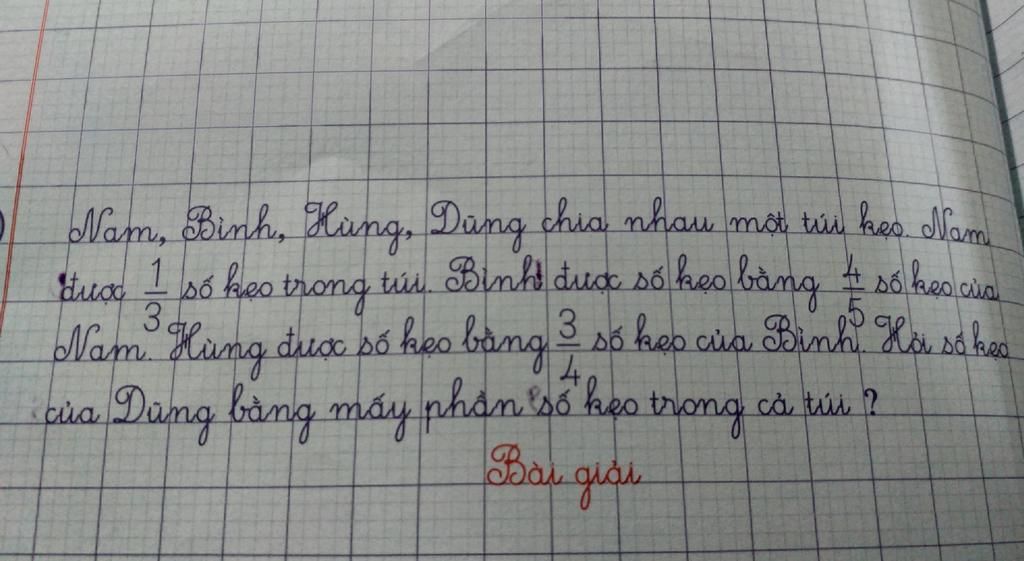 Nam, Bình, Hùng, Dũng chia nhau một túi kẹo. Nam
được 1/3 số kẹo trong túi. Bình được số kẹo bằng 4/5 số kẹo của
Nam. Hùng được số kẹo bằng 3/4 số kẹo của Bình. Hỏi số kẹo
của Dũng bằng mấy phần số kẹo trong cả túi?
Bài giải